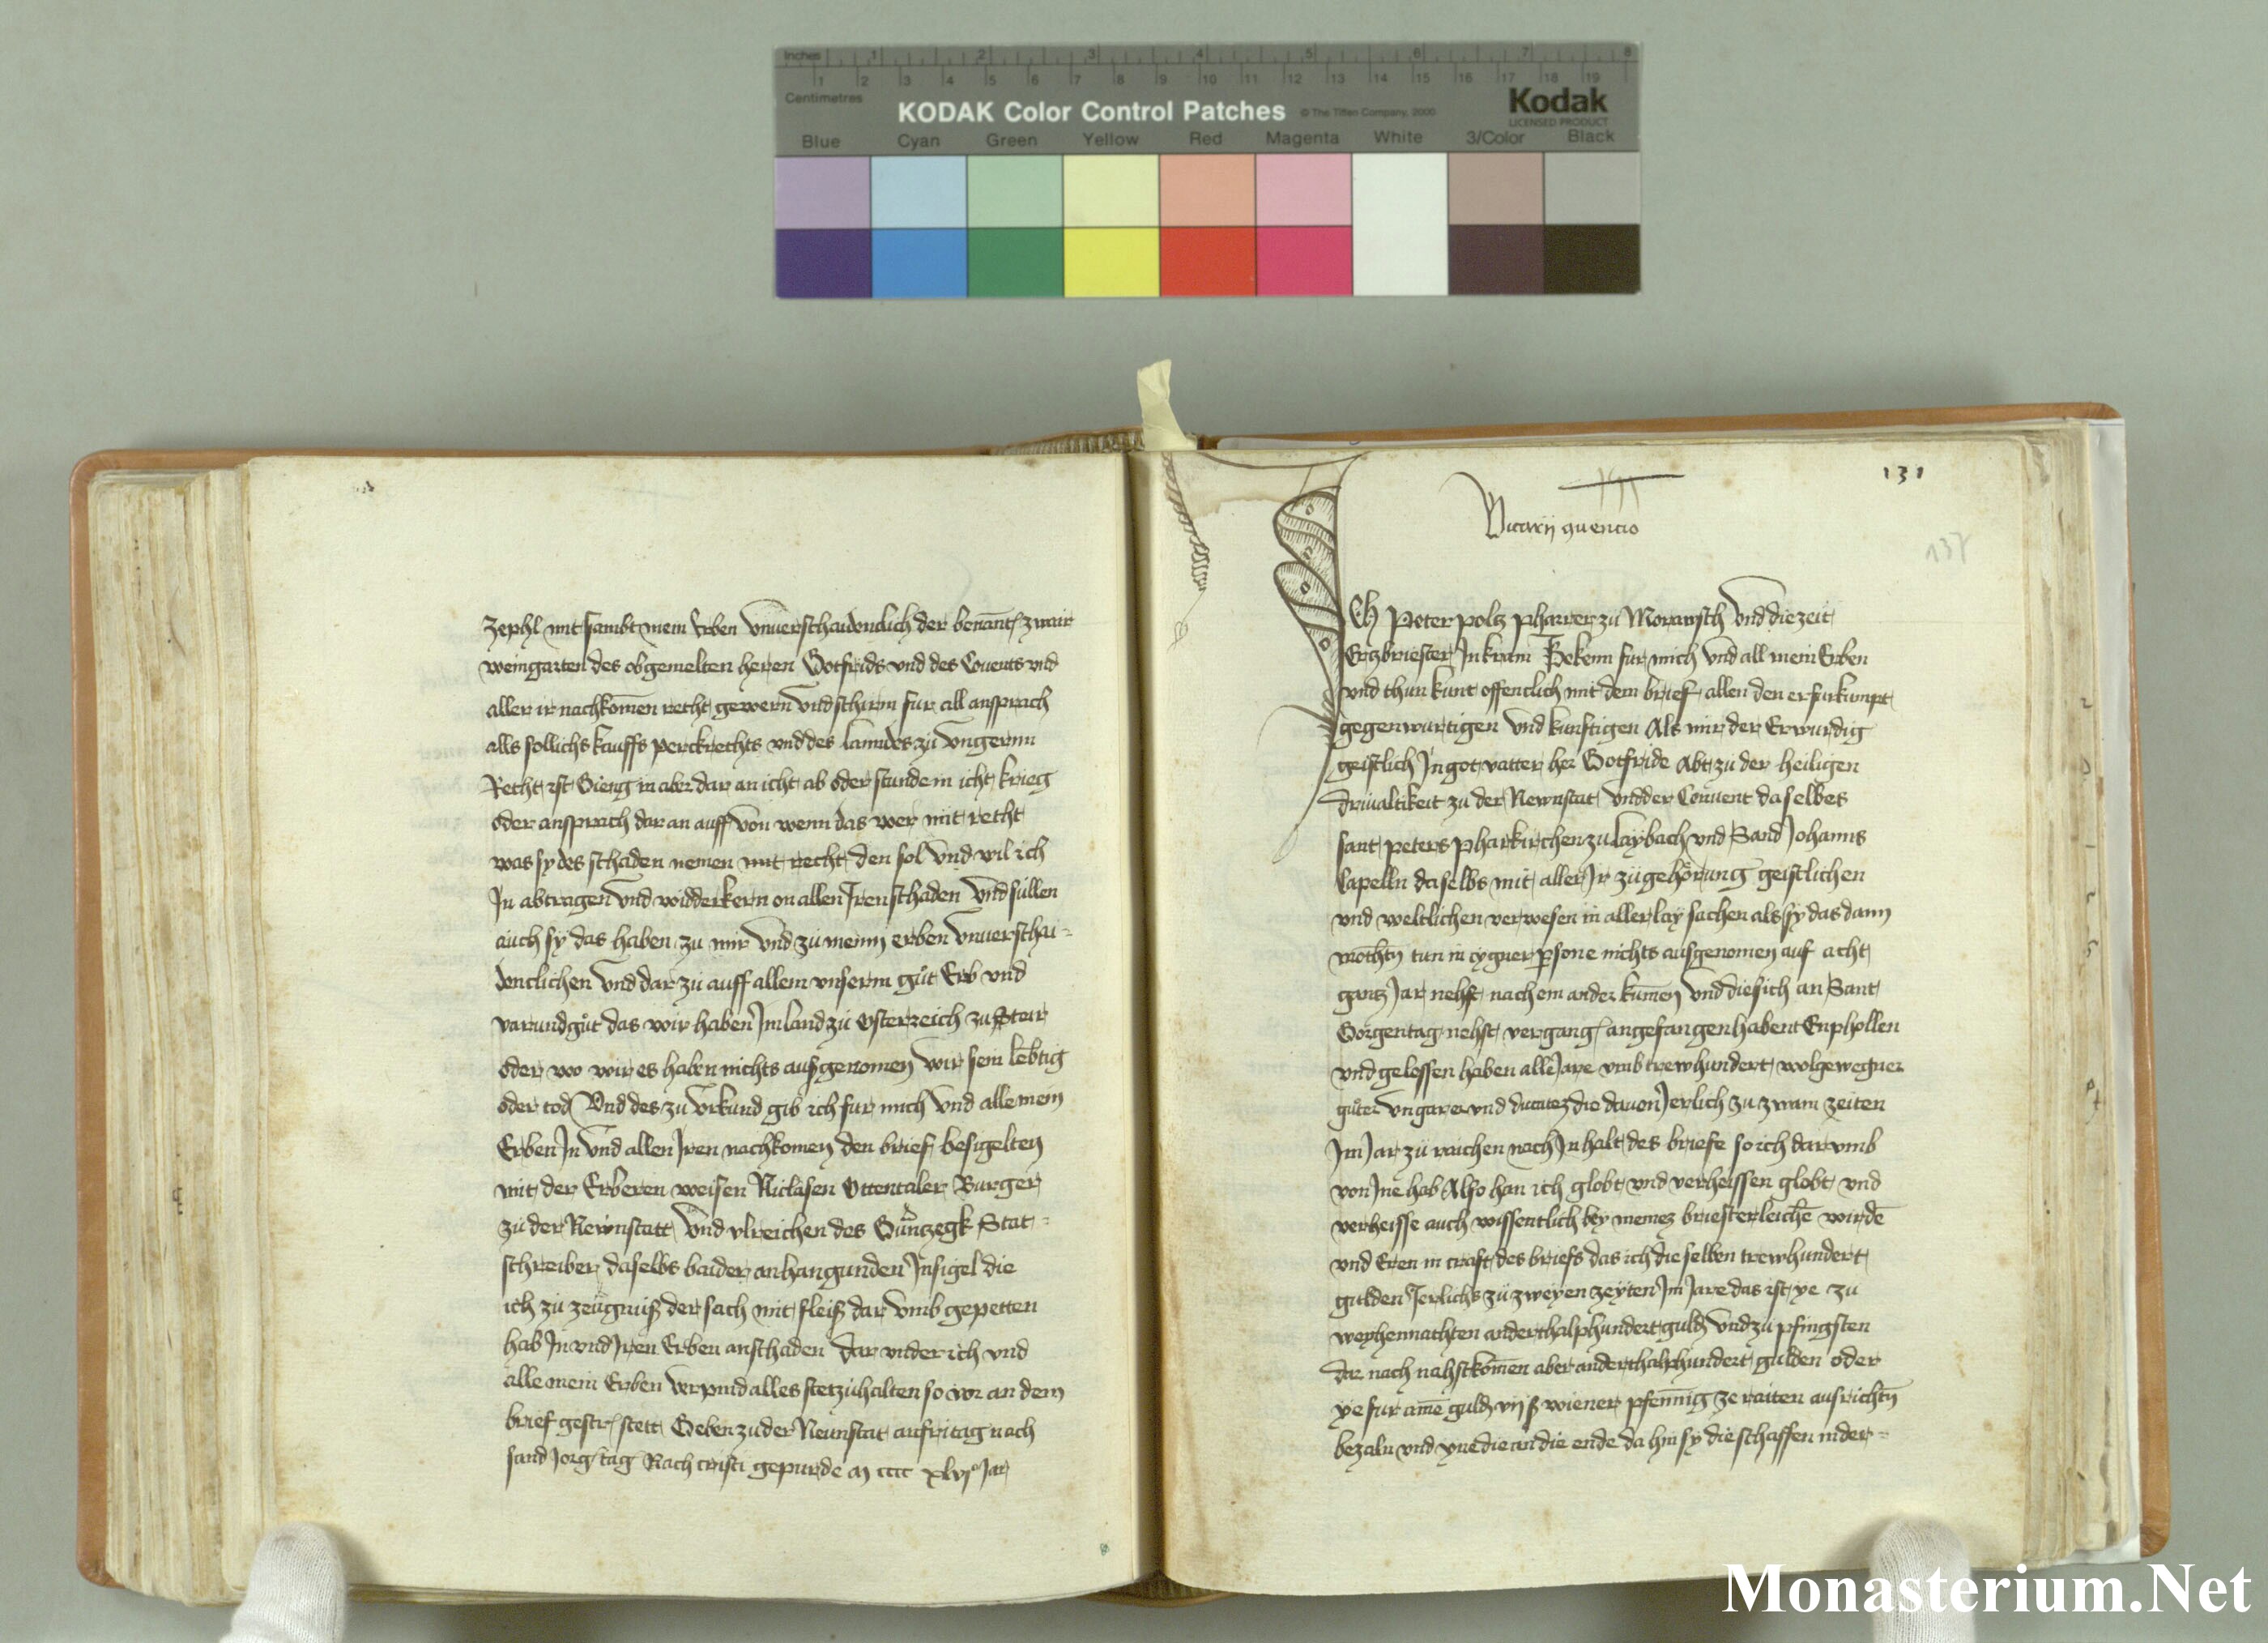 Inches 1 2 3 4 5 6 7 8
1 2 3 4 5 6 7 8 9 10 11 12 13 14 15 16 17 18 19
Centimetres
KODAK Color Control Patches © The Tiffen Company, 2000 Kodak
LICENSED PRODUCT
Blue Cyan Green Yellow Red Magenta White 3/Color Black
zephl mit sambt mein erben vnuerschaidenlich der benant zwair
weingarten des obgemelten heren Gotfrids vnd des Couents vnd
aller ir nachkomen recht gewern vnd schirm fur all ansprach
alls sollichs kauffs perckrechts vnd des lanndes zu vngernn
Recht ist Gieng in aber dar an icht ab oder stunde in icht krieg
oder ansprach dar an auff von wenn das wer mit recht
was sy des schaden nemen mit recht den sol vnd wil ich
Jn abtragen vnd widderkern on allen Jren schaden vnd sullen
auch sy das haben zu mir vnd zu meinn erben vnuerschai=
denclichen vnd dar zu auff allem vnserm gut Erb vnd
varundgut das wir haben Jm land zu Osterreich zu Steir
oder wo wir es haben nichts aus genomen wir sein lebtig
oder tod Vnd des zu vrkund gib ich fur mich vnd alle mein
Erben Jn vnd allen Jren nachkomen den brief besigelten
mit der Erberen weisen Niclasen Ottentaler Burger
zu der Newnstatt vnd vlreichen des Guntzegk Stat=
schreiber daselbs baider anhangunden Jnsigel die
ich zu zeugnuss der sach mit fleiss dar vmb gepetten
hab Jn vnd Jren Erben an schaden dar vnder ich vnd
alle mein Erben verpind alles stet zu halten so vor an dem
brief gestr stett Geben zu der Neunstat an fritag nach
sand Jorg tag Nach cristi gepurde M cccc xlvjo Jar
131
Vicarij
137
Ch Peter polz pharrer zu Morawtsch vnd die zeit
Ertzbriester Jn krain Bekenn fur mich vnd all mein Erben
vnd thun kunt offenclich mit dem brief allen den er furkumpt
gegenwurtigen vnd kunftigen Als mir der Erwurdig
geistlich Jn got vatter her Gotfride Abt zu der heiligen
driualtikeit zu der Newnstat vnd der Conuent daselbes
sant peters pharkirchen zu laybach vnd Sand Johanns
Capelln daselbs mit aller Jr zugehorung geistlichen
vnd weltlichen verwesen in allerlay sachen als sy das dann
mochtn tun in eygner persone nichts ausgenomen auf acht
gantz Jar nehst nach ein ander kumen vnd die sich an Sant
Gorgentag nehst vergang angefangen habent Enpholhen
vnd gelossen haben alle Jare vmb trewhundert wolgewegner
guter vngarer vnd ducatez die dauon Jerlich zu zwain zeiten
Jm Jar zu raichen nach Jnhalt des briefs so ich dar vmb
von Jne hab Also han ich globt vnd verheissen globt vnd
verheisse auch wissentlich bey meinez briesterleiche wirde
vnd Eren in craft des briefs das ich die selben trewhundert
gulden Jerlichs zu zweyen zeyten Jm Jare das ist ye zu
weyhennachten anderthalphundert guld vnd zu pfingsten
dar nach nahstkomen aber anderthalphundert gulden oder
ye fur aine guld vij ß wiener pfennig ze raiten ausrichtn
bezaln vnd yne die an die ende da hin sy die schaffen in der=
Monasterium.Net